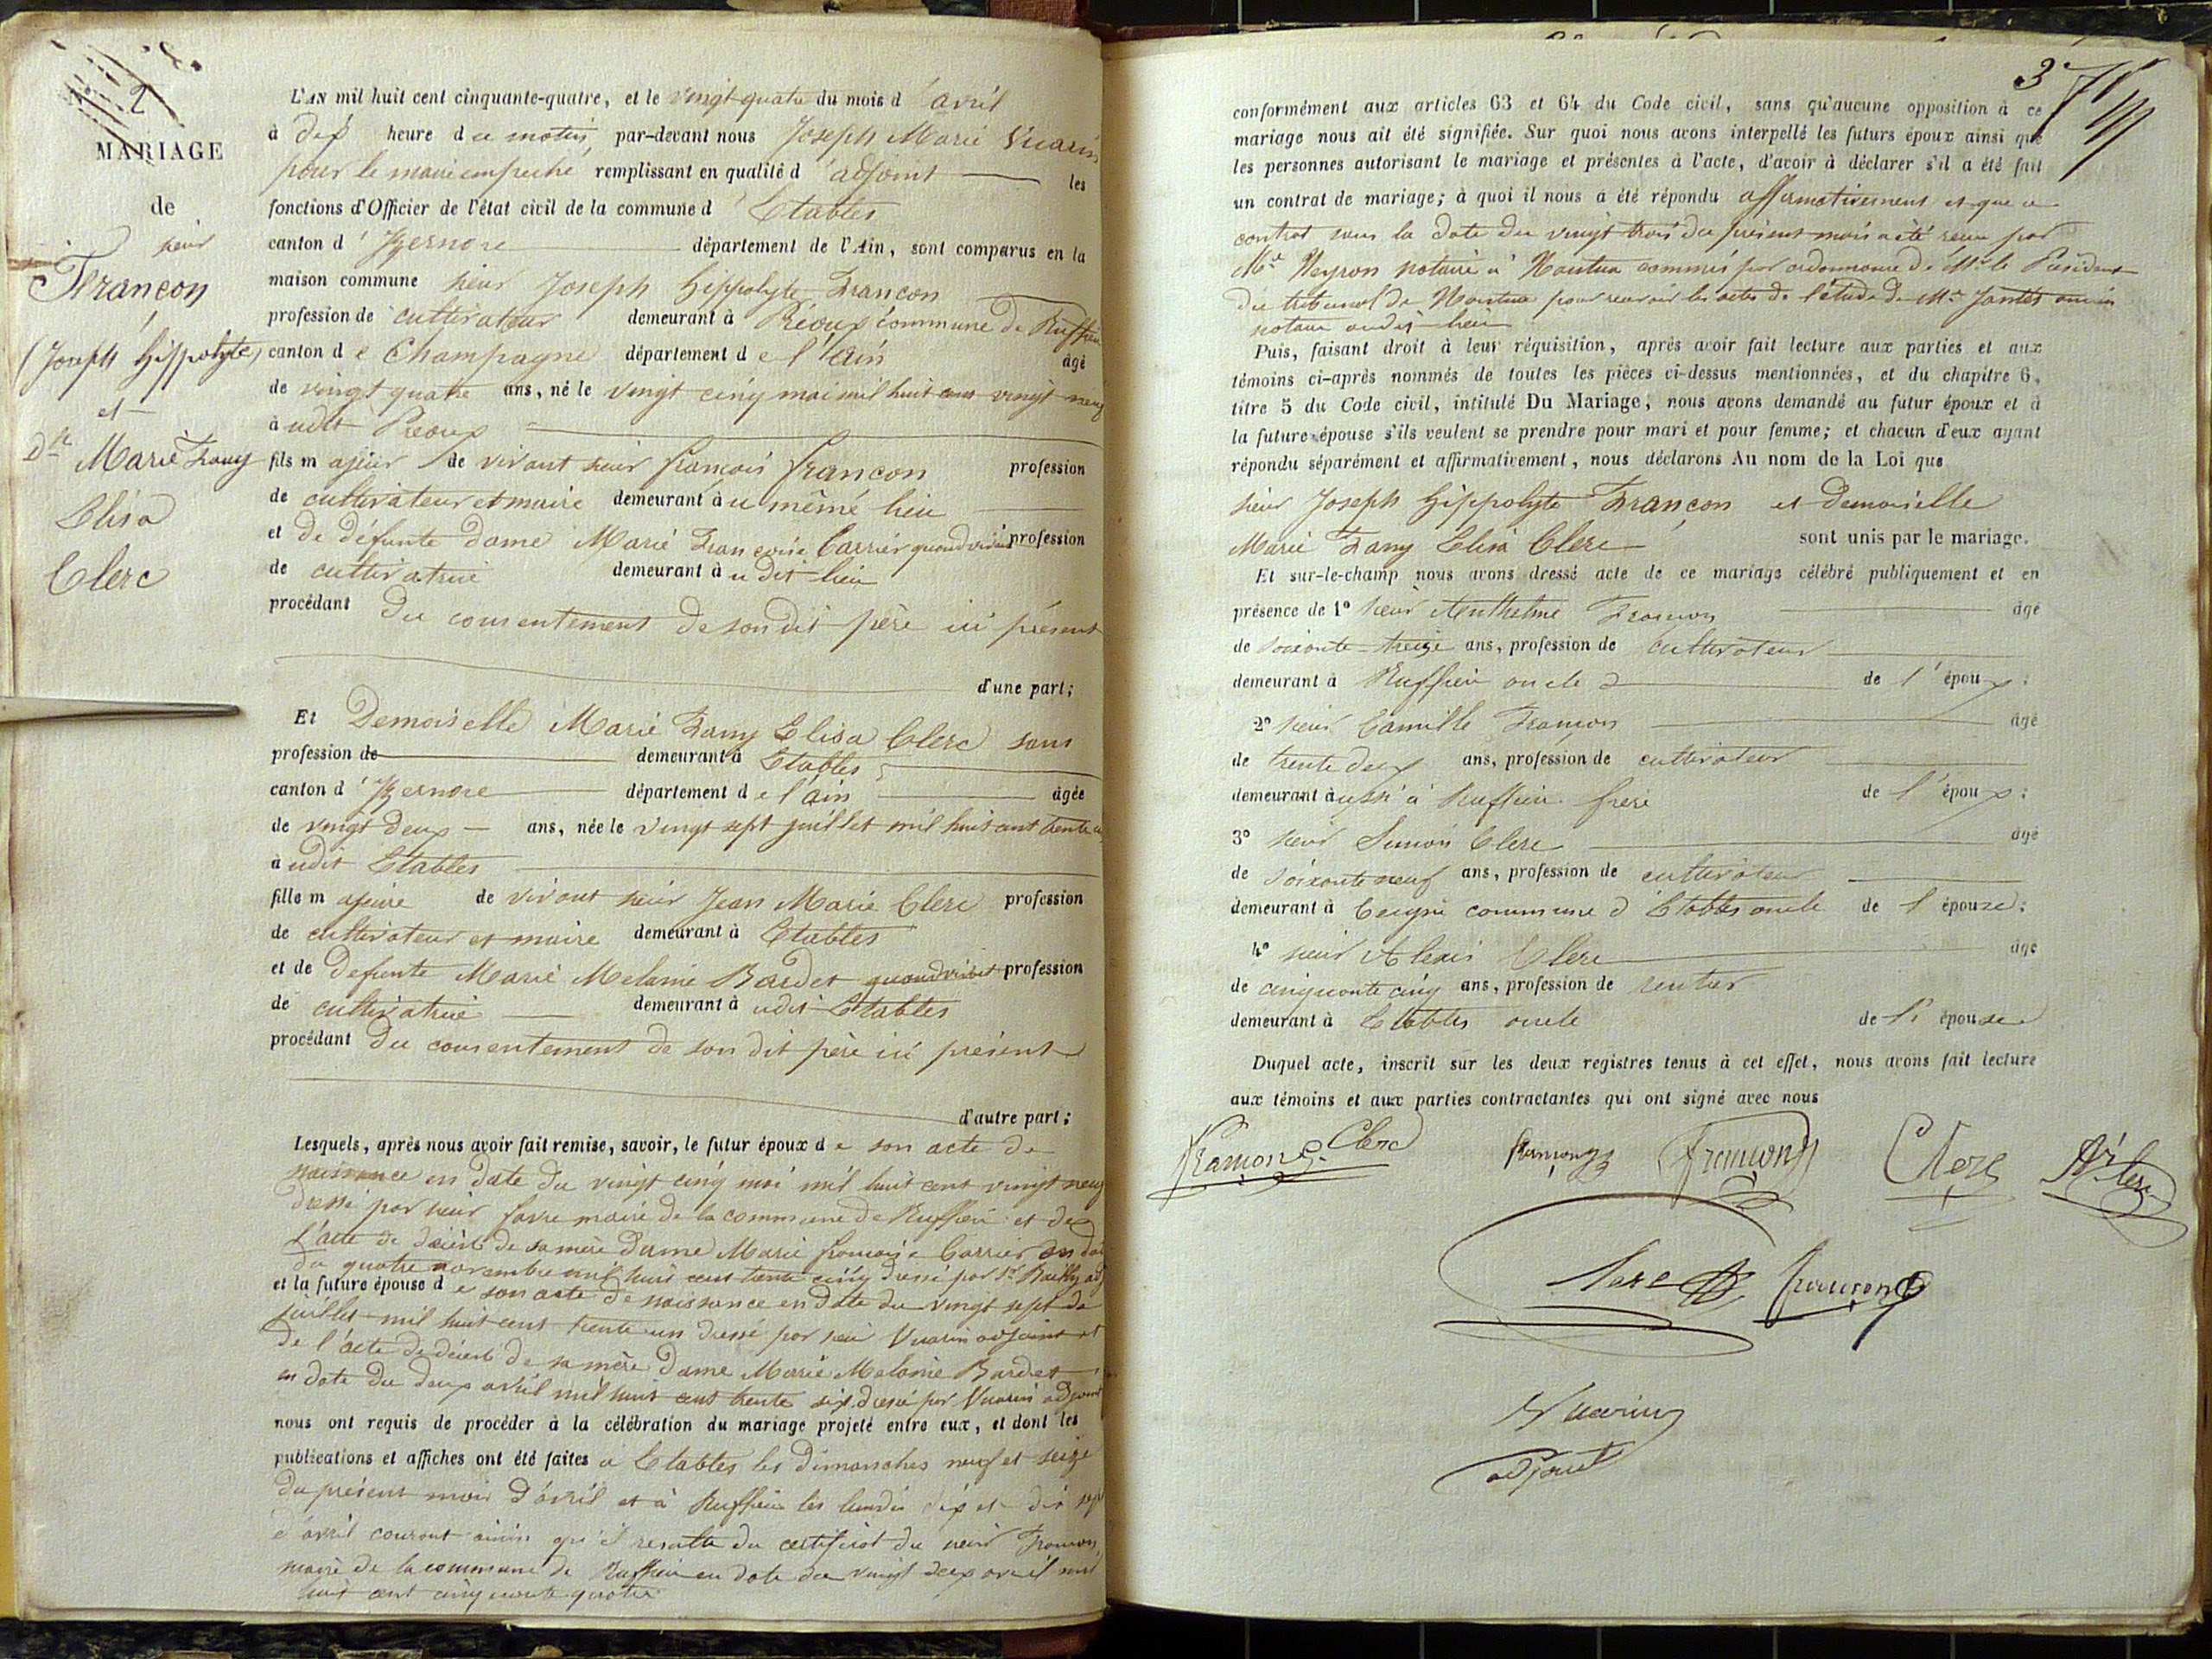 2
MARIAGE
de
sieur
Françon
(Joseph Hippolyte)
et
Dlle Marie Fany
Elisa
Clerc
L'AN mil huit cent cinquante-quatre, et le vingt quatre du mois d'avril
à dix heure du matin, par-devant nous Joseph Marie Vuarin
pour le maire empeché remplissant en qualité d'adjoint les
fonctions d'Officier de l'état civil de la commune d'Etables
canton d'Izernore département de l'Ain, sont comparus en la
maison commune sieur Joseph Hippolyte Françon
profession de cultivateur demeurant à Préoux commune de Ruffieu
canton de Champagne département de l'Ain âgé
de vingt quatre ans, né le vingt cinq mai mil huit cent vingt neuf
à udit Préoux
fils majeur de vivant sieur françois françon profession
de cultivateur et maire demeurant à u même lieu
et de défunte dame Marie Françoise Carrier quand vivait profession
de cultivatrice demeurant à u dit lieu
procédant du consentement de son dit père ici présent
d'une part;
Et Demoiselle Marie Fany Elisa Clerc sans
profession de demeurant à Etables
canton d'Izernore département de l'ain âgée
de vingt deux ans, née le vingt sept juillet mil huit cent trente un
à udit Etables
fille majeure de vivant sieur Jean Marie Clerc profession
de cultivateur et maire demeurant à Etables
et de defunte Marie Melanie Bardet quand vivait profession
de cultivatrice demeurant à udit Etables
procédant du consentement de son dit père ici présent
d'autre part;
Lesquels, après nous avoir fait remise, savoir, le futur époux de son acte de
naissance en date du vingt cinq mai mil huit cent vingt neuf
dressé par sieur favre maire de la commune de Ruffieu et de
l'acte de décès de sa mère dame Marie françoise Carrier en date
du quatre novembre mil huit cent trente cinq dressé par Sr Bailly adj
et la future épouse de son acte de naissance en date du vingt sept de
juillet mil huit cent trente un dressé par sieur Vuarin adjoint et
de l'acte de décès de sa mère dame Marie Melanie Bardet
en date du deux avril mil huit cent trente six dressé par Vuarin adjoint
nous ont requis de procéder à la célébration du mariage projeté entre eux, et dont les
publications et affiches ont été faites à Etables les dimanches neuf et seize
du présent mois d'avril et à Ruffieu les lundis dix et dix sept
d'avril courant ainsi qu'il resulte du certificat du sieur Françon
maire de la commune de Ruffieu en date du vingt deux avril mil
huit cent cinquante quatre
3
conformément aux articles 63 et 64 du Code civil, sans qu'aucune opposition à ce
mariage nous ait été signifiée. Sur quoi nous avons interpellé les futurs époux ainsi que
les personnes autorisant le mariage et présentes à l'acte, d'avoir à déclarer s'il a été fait
un contrat de mariage; à quoi il nous a été répondu affirmativement et que ce
contrat sous la date du vingt trois du présent mois a été reçu par
Me Neyron notaire à Nantua commis par ordonnance de Mr le Président
du tribunal de Nantua pour recevoir les actes de l'étude de Me Jantet ancien
notaire audit lieu
Puis, faisant droit à leur réquisition, après avoir fait lecture aux parties et aux
témoins ci-après nommés de toutes les pièces ci-dessus mentionnées, et du chapitre 6,
titre 5 du Code civil, intitulé Du Mariage, nous avons demandé au futur époux et à
la future épouse s'ils veulent se prendre pour mari et pour femme; et chacun d'eux ayant
répondu séparément et affirmativement, nous déclarons Au nom de la Loi que
sieur Joseph Hippolyte Françon et demoiselle
Marie Fany Elisa Clerc sont unis par le mariage.
Et sur-le-champ nous avons dressé acte de ce mariage célébré publiquement et en
présence de 1º sieur Anthelme Françon âgé
de soixante-treize ans, profession de cultivateur
demeurant à Ruffieu oncle de l'époux;
2º sieur Camille Françon âgé
de trente deux ans, profession de cultivateur
demeurant à ussi à Ruffieu frère de l'époux;
3º sieur Simon Clerc âgé
de soixante neuf ans, profession de cultivateur
demeurant à commune d'Etables oncle de l'épouse;
4º sieur Alexis Clerc âgé
de cinquante cinq ans, profession de rentier
demeurant à Etables oncle de l'épouse
Duquel acte, inscrit sur les deux registres tenus à cet effet, nous avons fait lecture
aux témoins et aux parties contractantes qui ont signé avec nous
françon E. Clerc françon françon Clerc
Clerc françon
Vuarin
adjoint